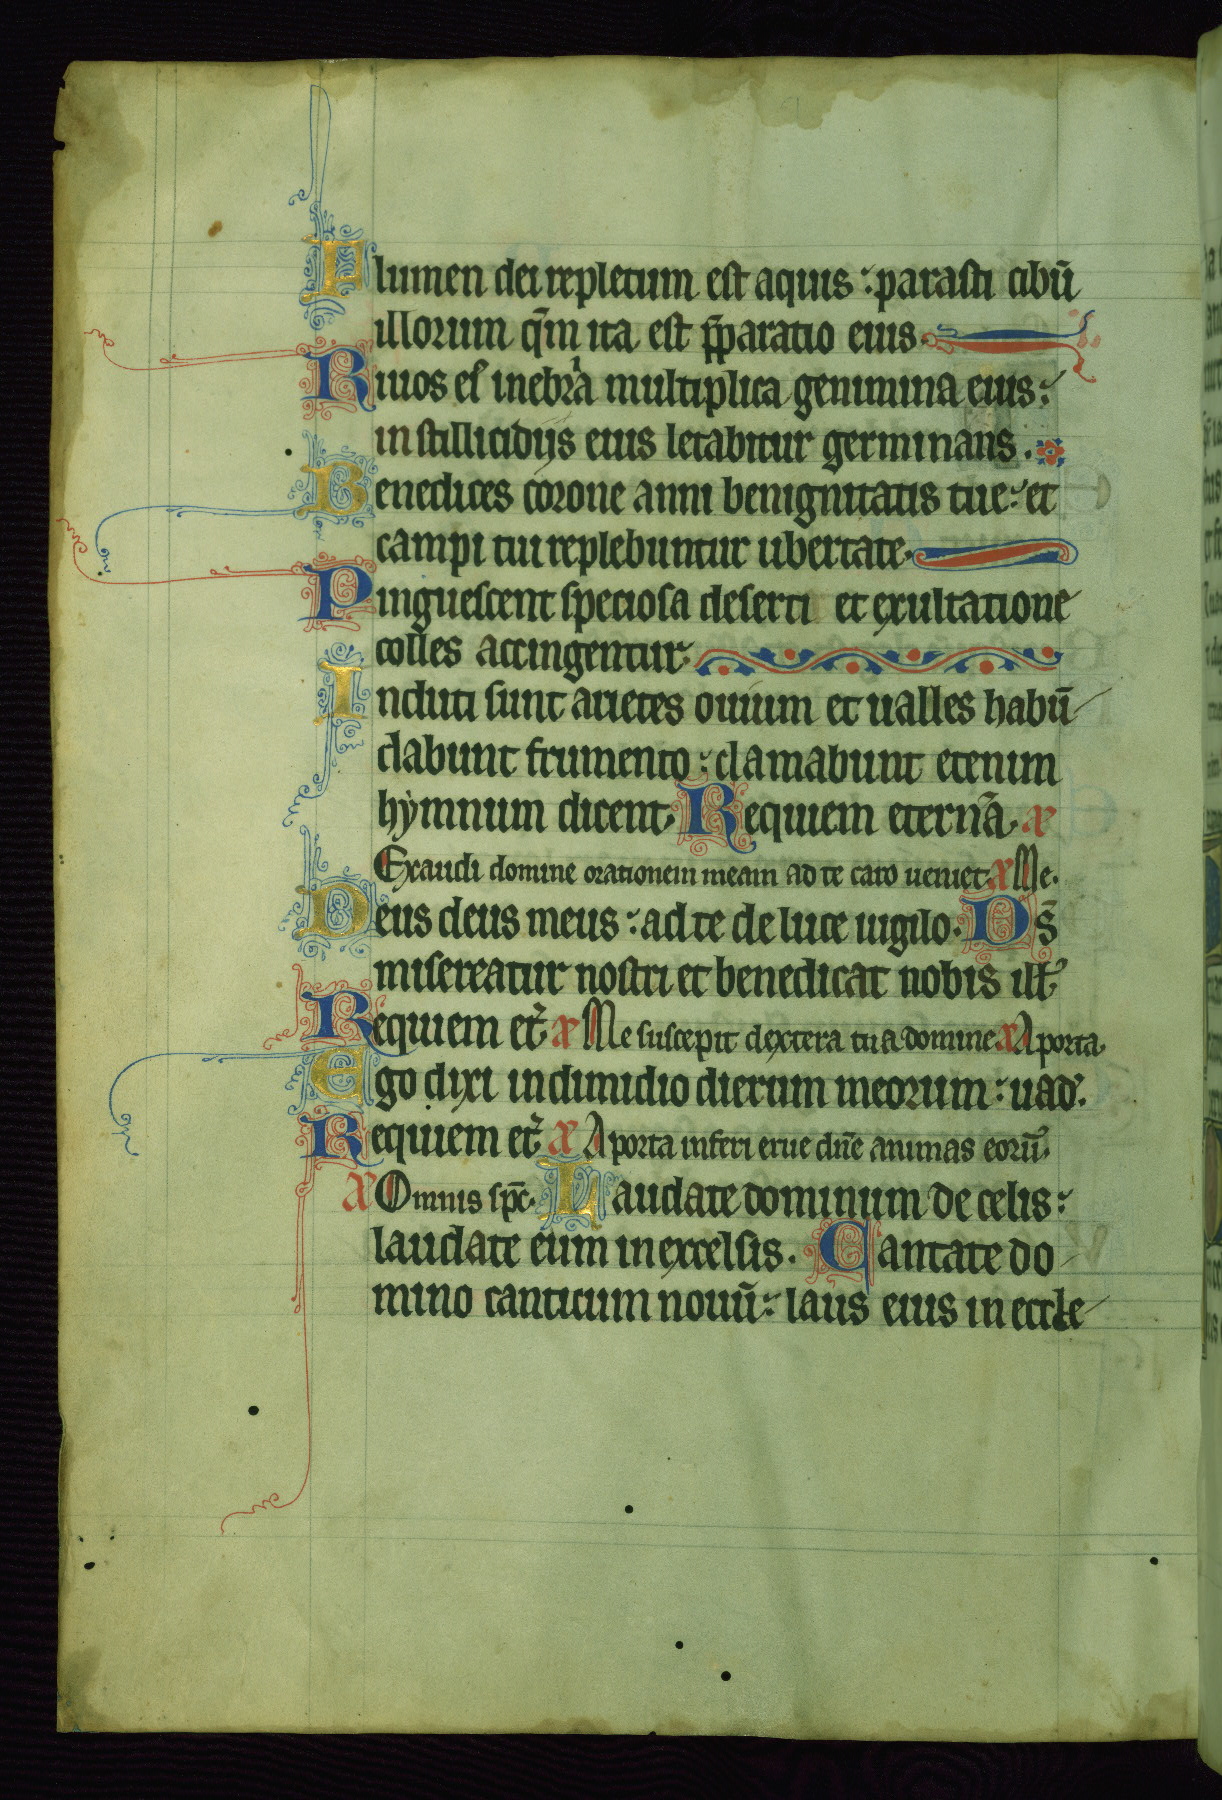 Flumen dei repletum est aquis : parasti cibū
illorum qm̄ ita est p̄paratio eius
Riuos eı᷒ inebrͣa multiplica genimina eius :
in stillicidijs eius letabitur germinans .
Benedices corone anni benignitatis tue : et
campi tui replebuntur ubertate .
Pinguescent speciosa deserti et exultatione
colles accingentur .
Induti sunt arietes ouium et ualles habū
dabunt frumento : clamabunt etenim
hẏmnum dicent . Requiem eternā . a᷒
Exaudi domine orationem meam ad te caro ueniet . a᷒ Me .
Deus deus meus : ad te de luce uigilo . Ds̄
misereatur nostri et benedicat nobis ill᷒
Requiem et᷒ . a᷒ Me suscepit dextera tua domine a᷒ A porta .
Ego dixi in dimidio dierum meorum : uad᷒ .
Requiem et᷒ . a᷒ A porta inferi erue dn̄e animas eorū .
a᷒ Omnis sp̄c . Laudate dominum de celis :
laudate eum in excelsis . Cantate do
mino canticum nouū : laus eius in eccle